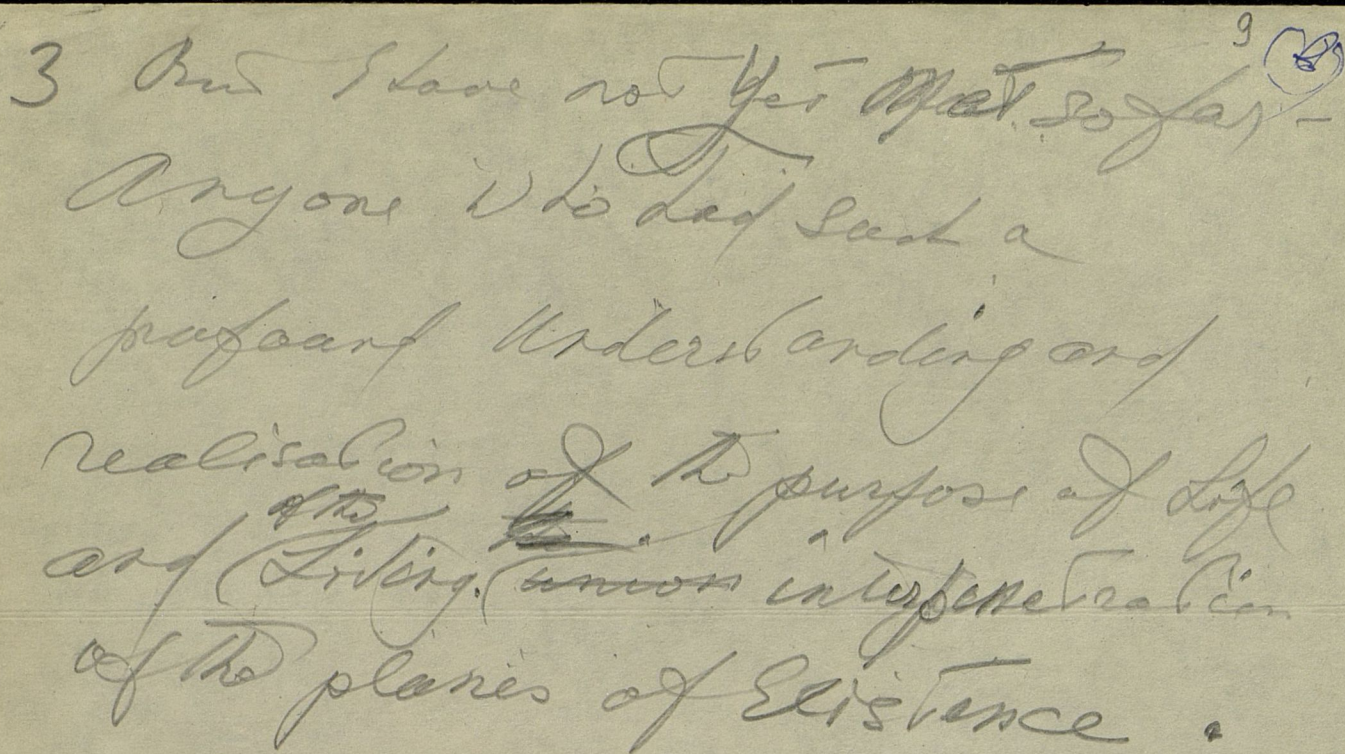 9
3 But I have not Yet Met so far –
Anyone who had such a
profound Understanding and
realisation of the purpose of Life
of the
and (Living. (union interpenetration
of the planes of Existence.